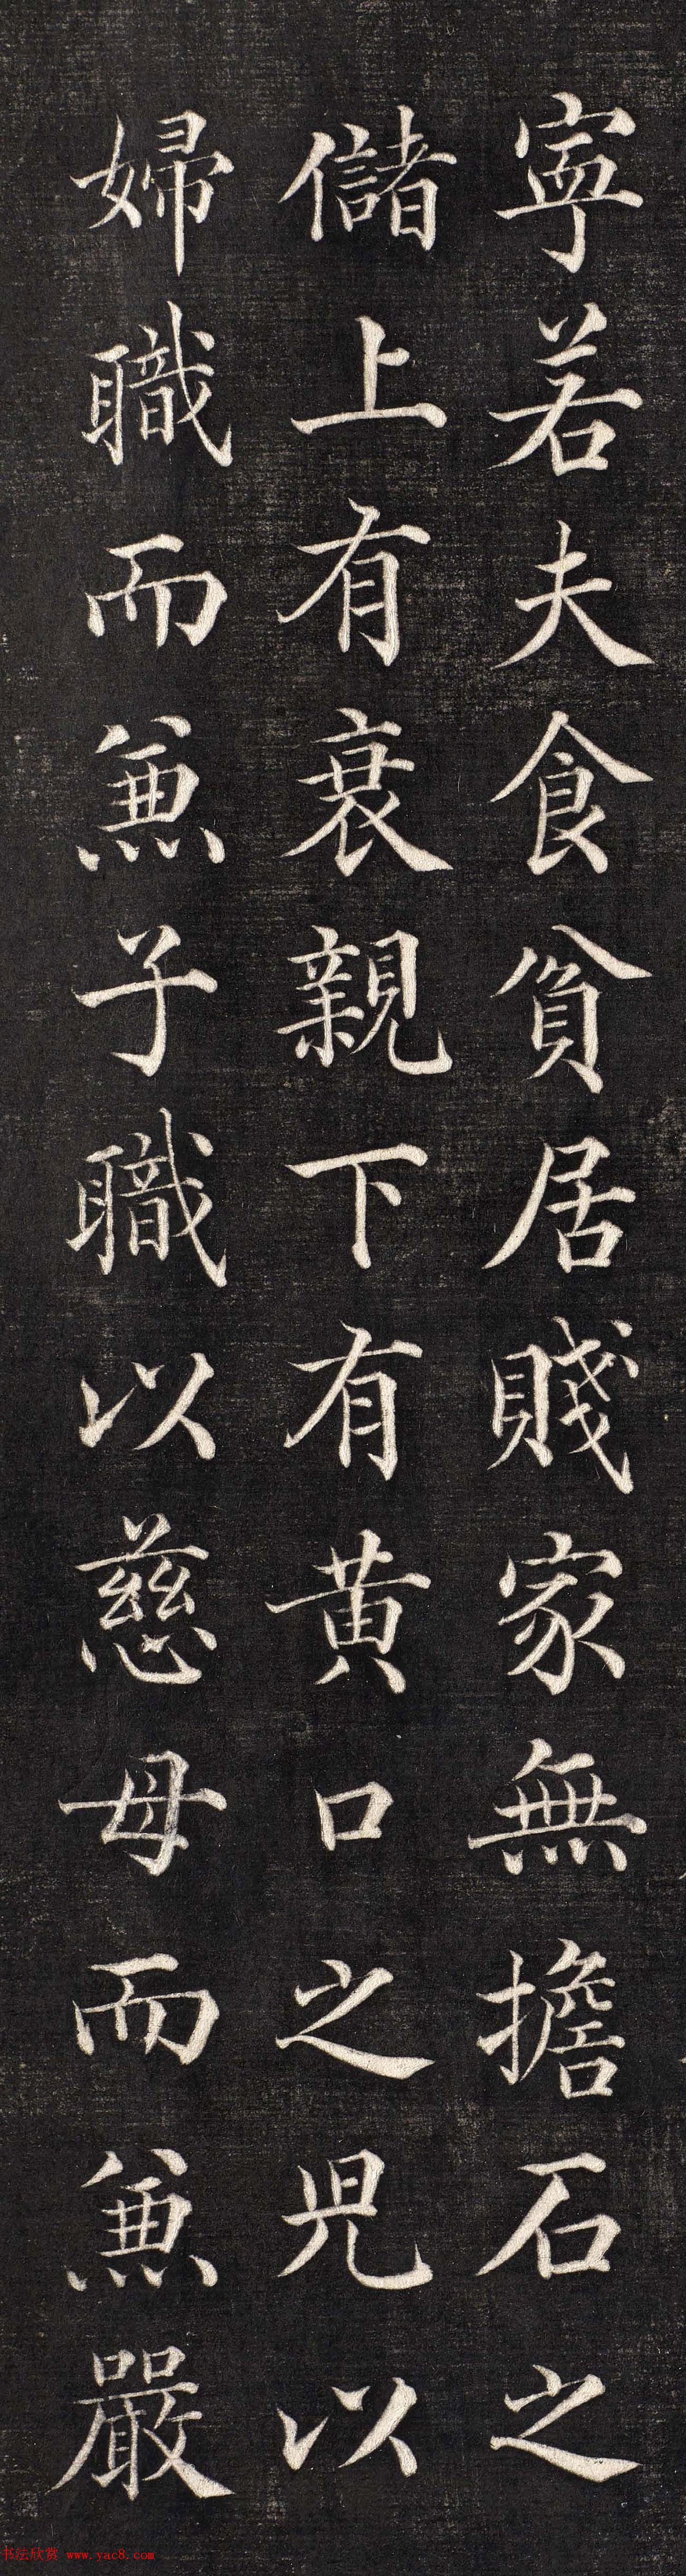 寕若夫食貧居賤家無擔石之
儲上有衰親下有黃口之兒以
婦職而兼子職以慈母而兼嚴
书法欣赏 www.yac8.com